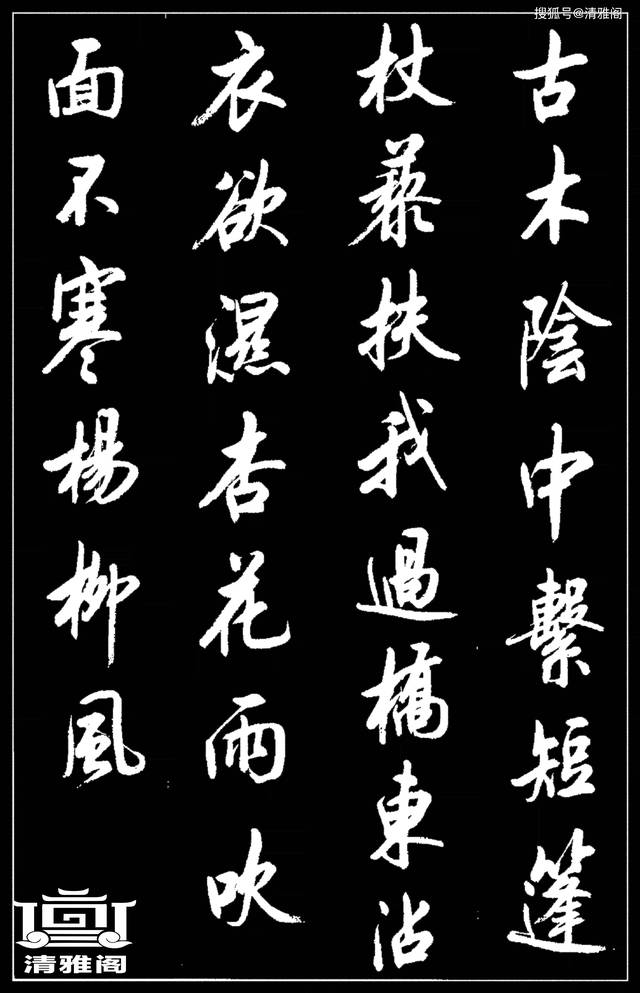 搜狐号@清雅阁
古木陰中繫短篷
杖藜扶我過橋東沾
衣欲濕杏花雨吹
面不寒楊柳風
清雅阁